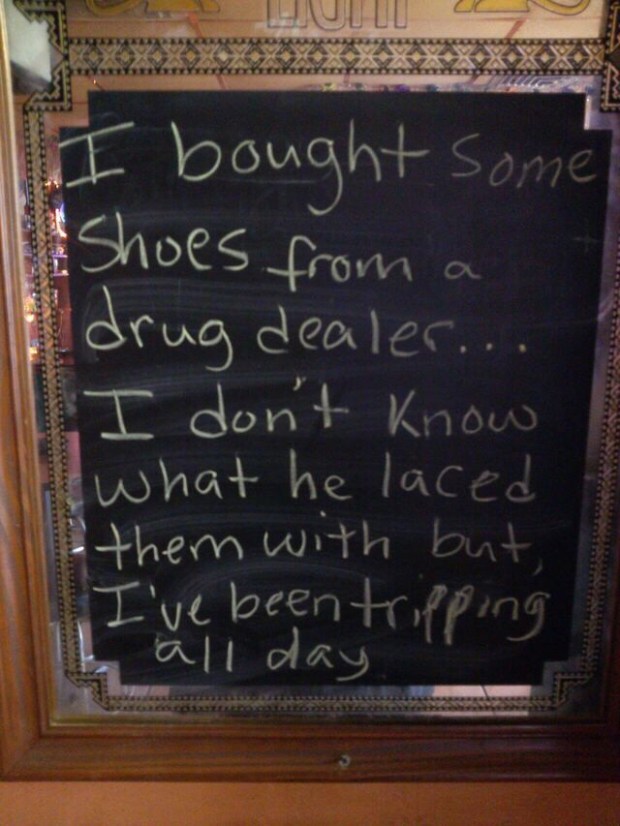 LIGHT
I bought some
shoes from a
drug dealer...
I don't know
what he laced
them with but,
I've been tripping
all day